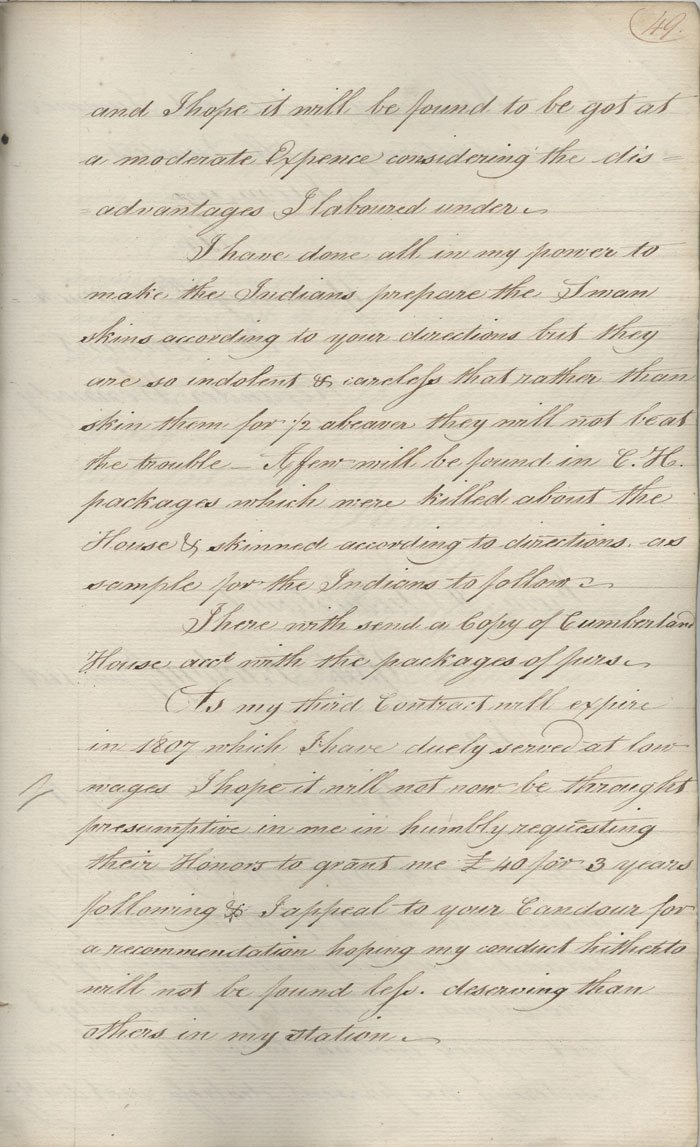 49.
and I hope it will be found to be got at
a moderate Expence considering the dis=
=advantages I laboured under
I have done all in my power to
make the Indians prepare the Swan
skins according to your directions but they
are so indolent & careless that rather than
skin them for 1/2 a beaver they will not be at
the trouble – A few will be found in C. H.
packages which were killed about the
House & skinned according to directions. as
sample for the Indians to follow
I here with send a Copy of Cumberland
House acct. with the packages of furs
As my third Contract will expire
in 1807 which I have duely served at low
wages I hope it will not now be throught
presumptive in me in humbly requesting
their Honors to grant me £ 40 for 3 years
following & I appeal to your Candour for
a recommendation hoping my conduct hitherto
will not be found less. deserving than
others in my station